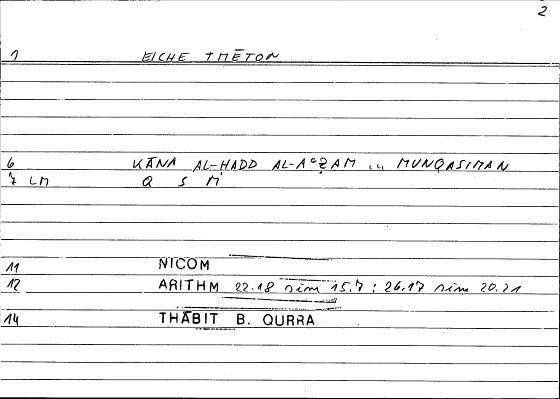 2
1 EICHE TMĒTON
6 KĀNA AL-ḤADD AL-AʿẒAM MUNQASIMAN
7 LM Q S M
11 NICOM
12 ARITHM 22.18 sim 15.7 ; 26.17 sim 20.21
14 THĀBIT B. QURRA